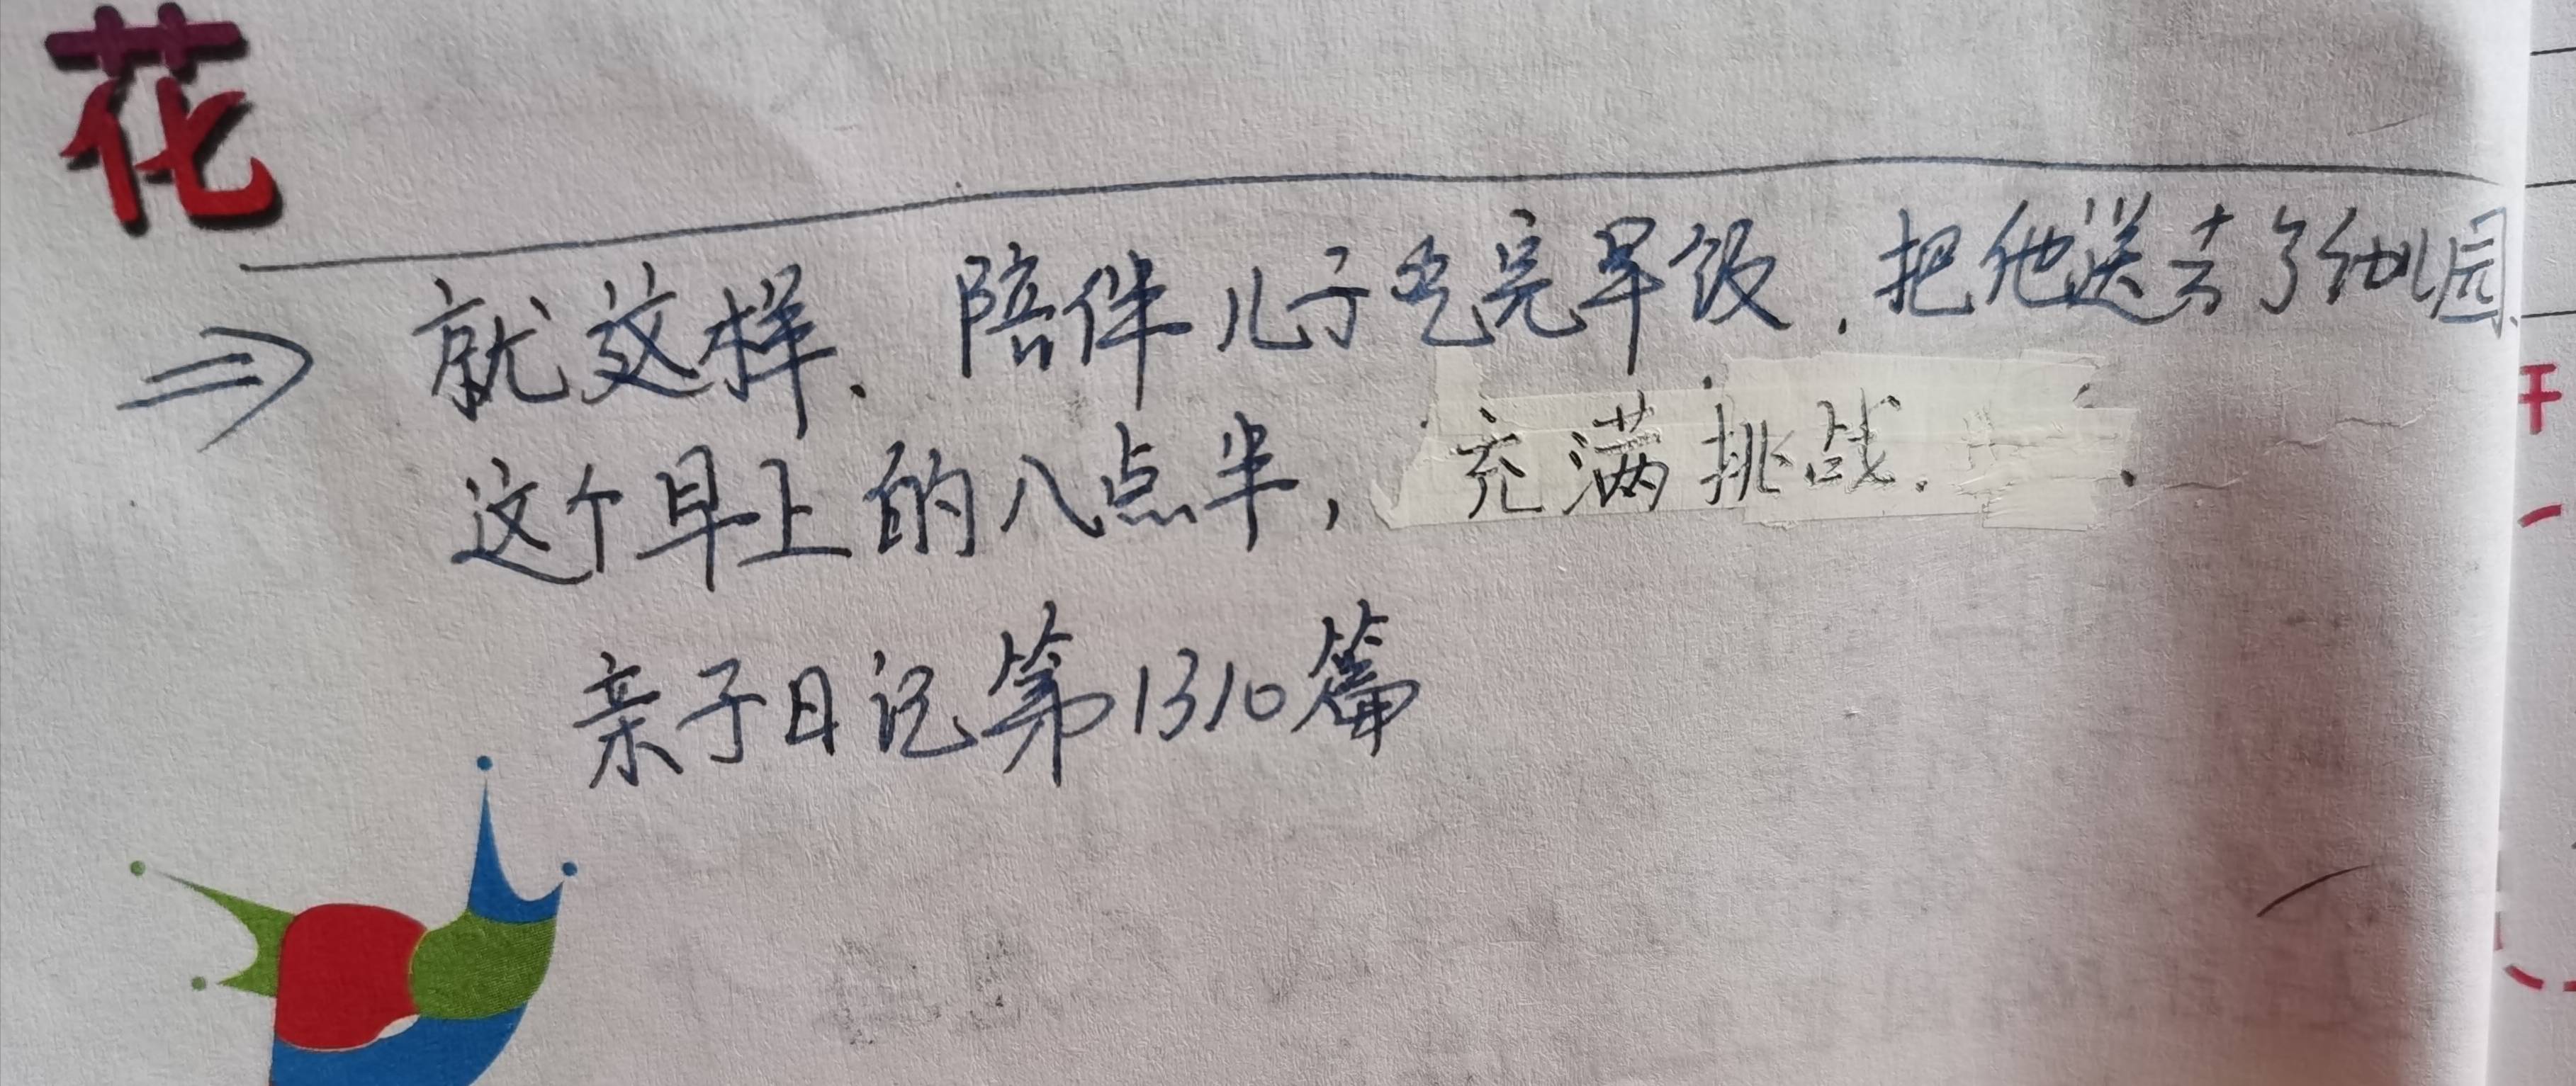 花
就这样、陪伴儿子吃完早饭,把他送去了幼儿园、
这个早上的八点半,充满挑战.
亲子日记第1310篇